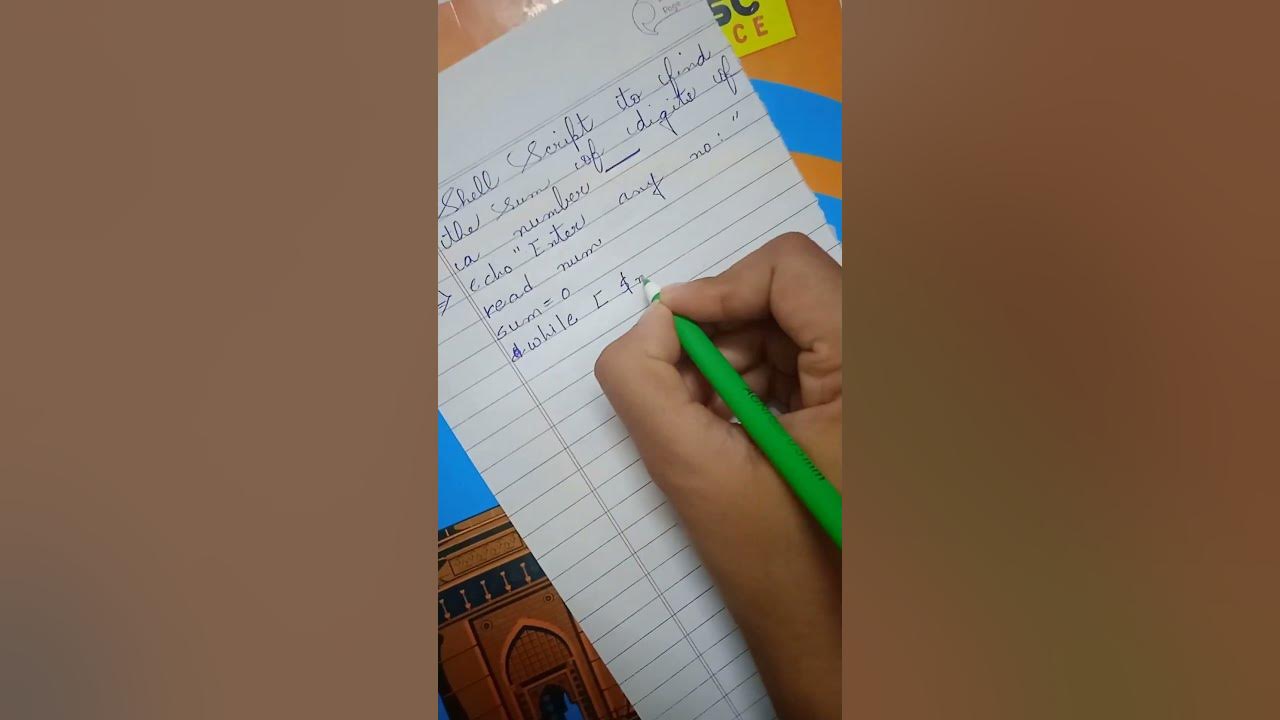 Page
SC
CE
Shell Script to find
the sum of digits of
a number
echo "Enter any no:"
read num
sum=0
while [ $n